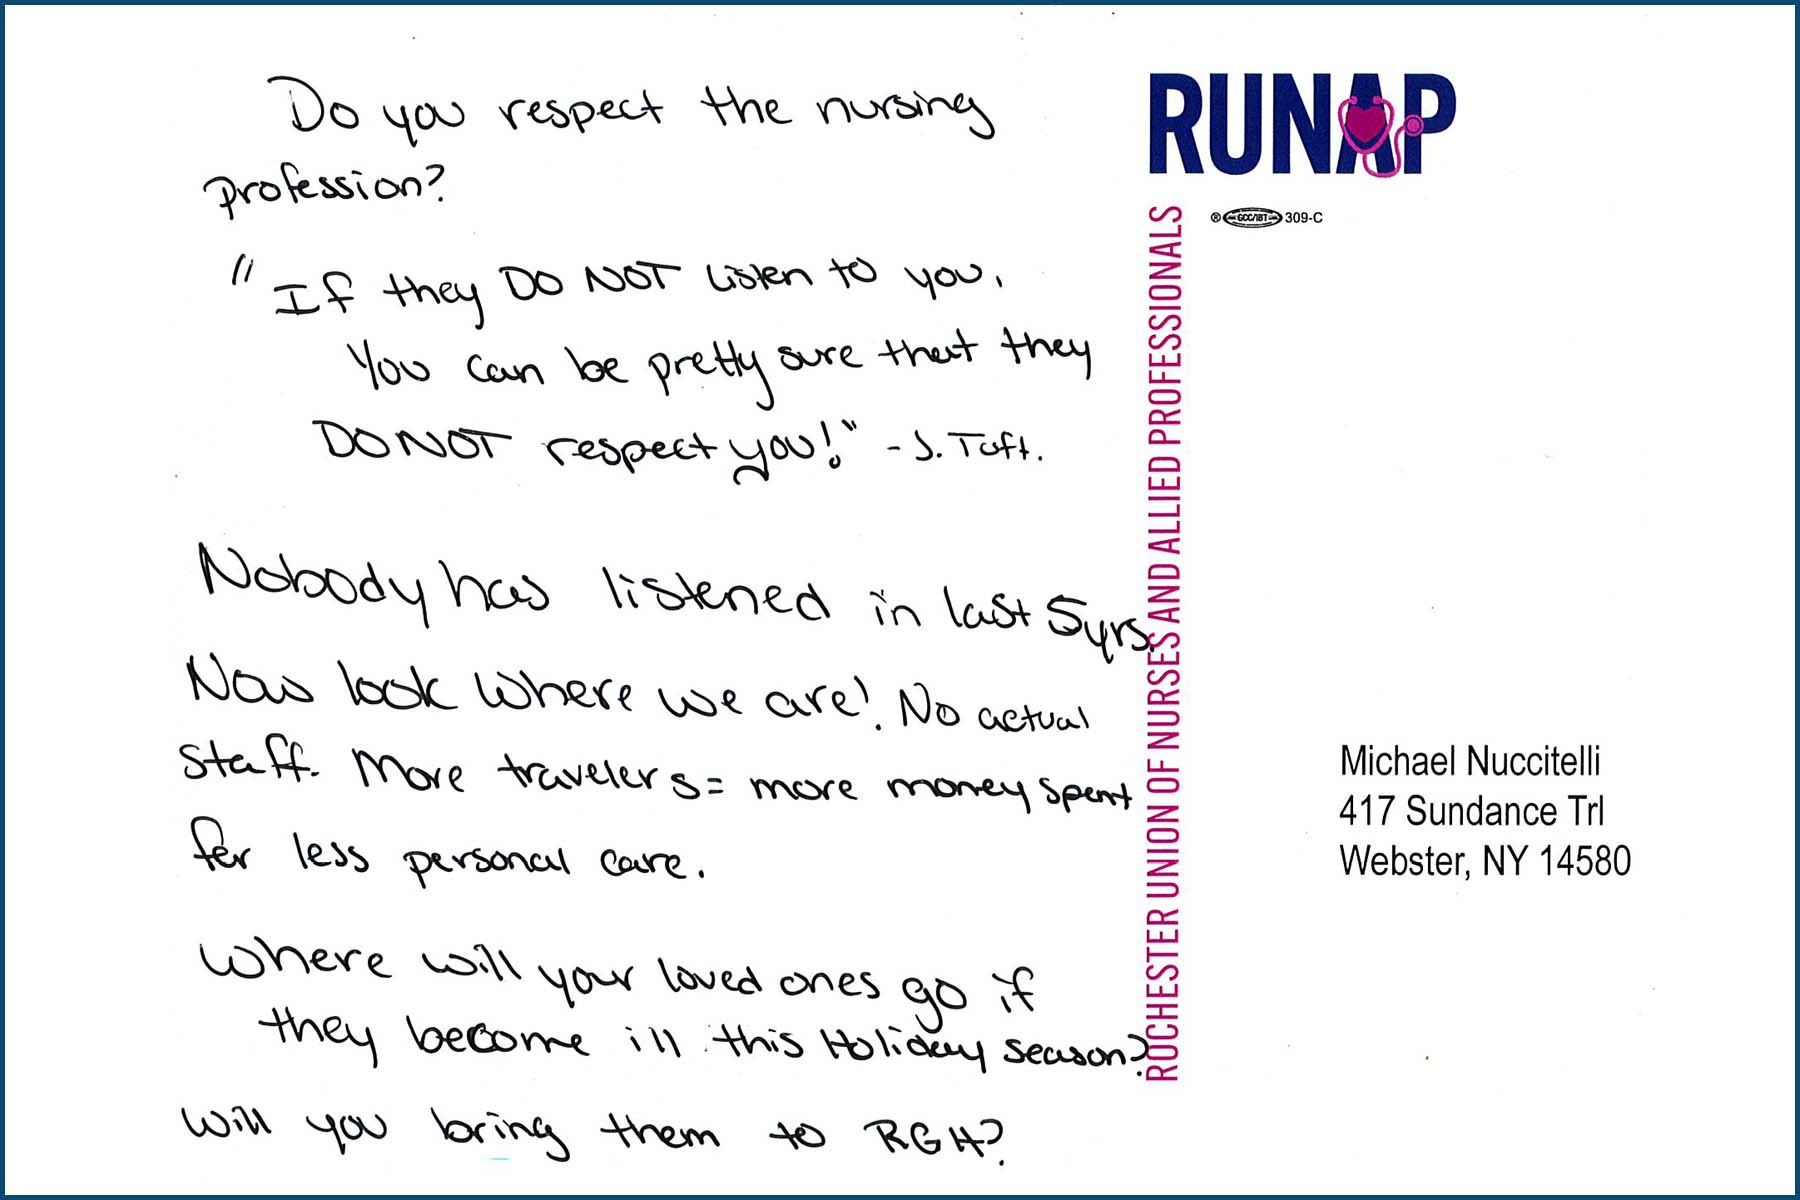 Do you respect the nursing
profession?
"If they DO NOT listen to you,
You can be pretty sure that they
DO NOT respect you!" - J. Tuft.
Nobody has listened in last 5yrs.
Now look where we are! No actual
staff. More travelers = more money spent
for less personal care.
Where will your loved ones go if
they become ill this Holiday season?
Will you bring them to RGH?
RUNAP
® GCC/IBT 309-C
ROCHESTER UNION OF NURSES AND ALLIED PROFESSIONALS
Michael Nuccitelli
417 Sundance Trl
Webster, NY 14580